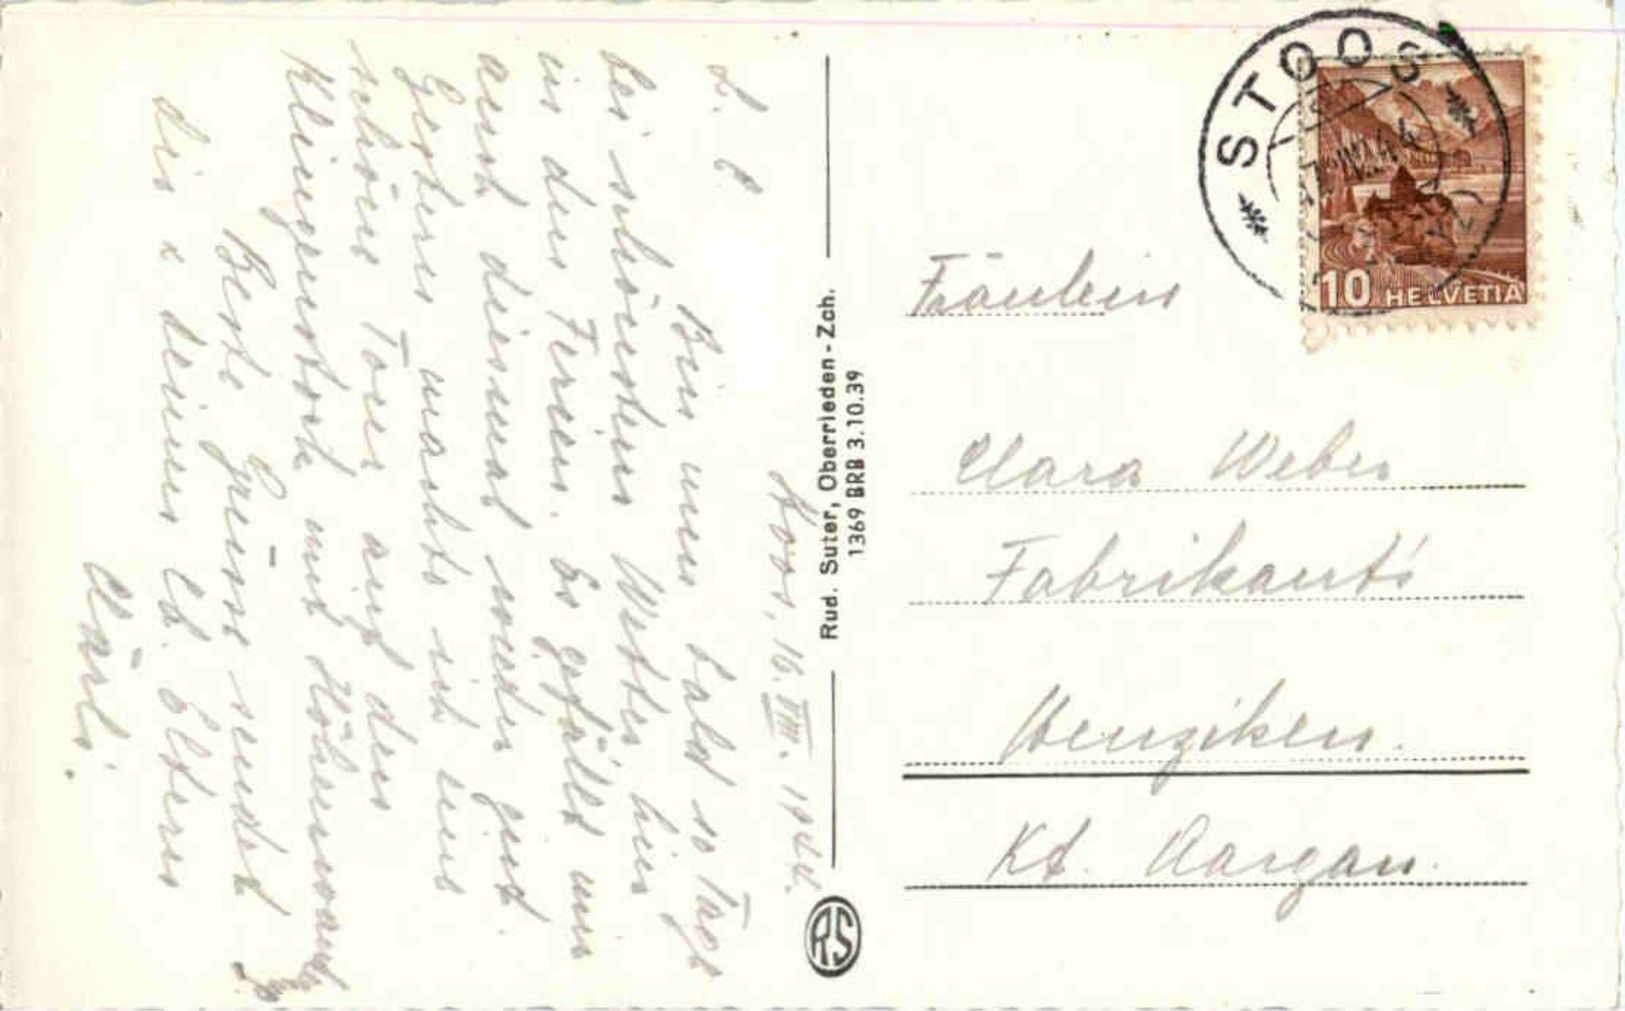 Stoos, 16. VIII. 1944.
L. C.
Bin nun bald 10 Tage
bei schönstem Wetter hier
in den Ferien. Es gefällt mir
auch diesmal wieder gut.
Gestern machte ich eine
schöne Tour auf den
Klingenstock mit Höhenwand
Beste Grüsse sendet
dir & deinen lb. Eltern
Clärli
Rud. Suter, Oberrieden-Zch.
1369 BRB 3.10.39
RS
STOOS
10 HELVETIA
Fräulein
Clara Weber
Fabrikant's
Menziken.
Kt. Aargau.